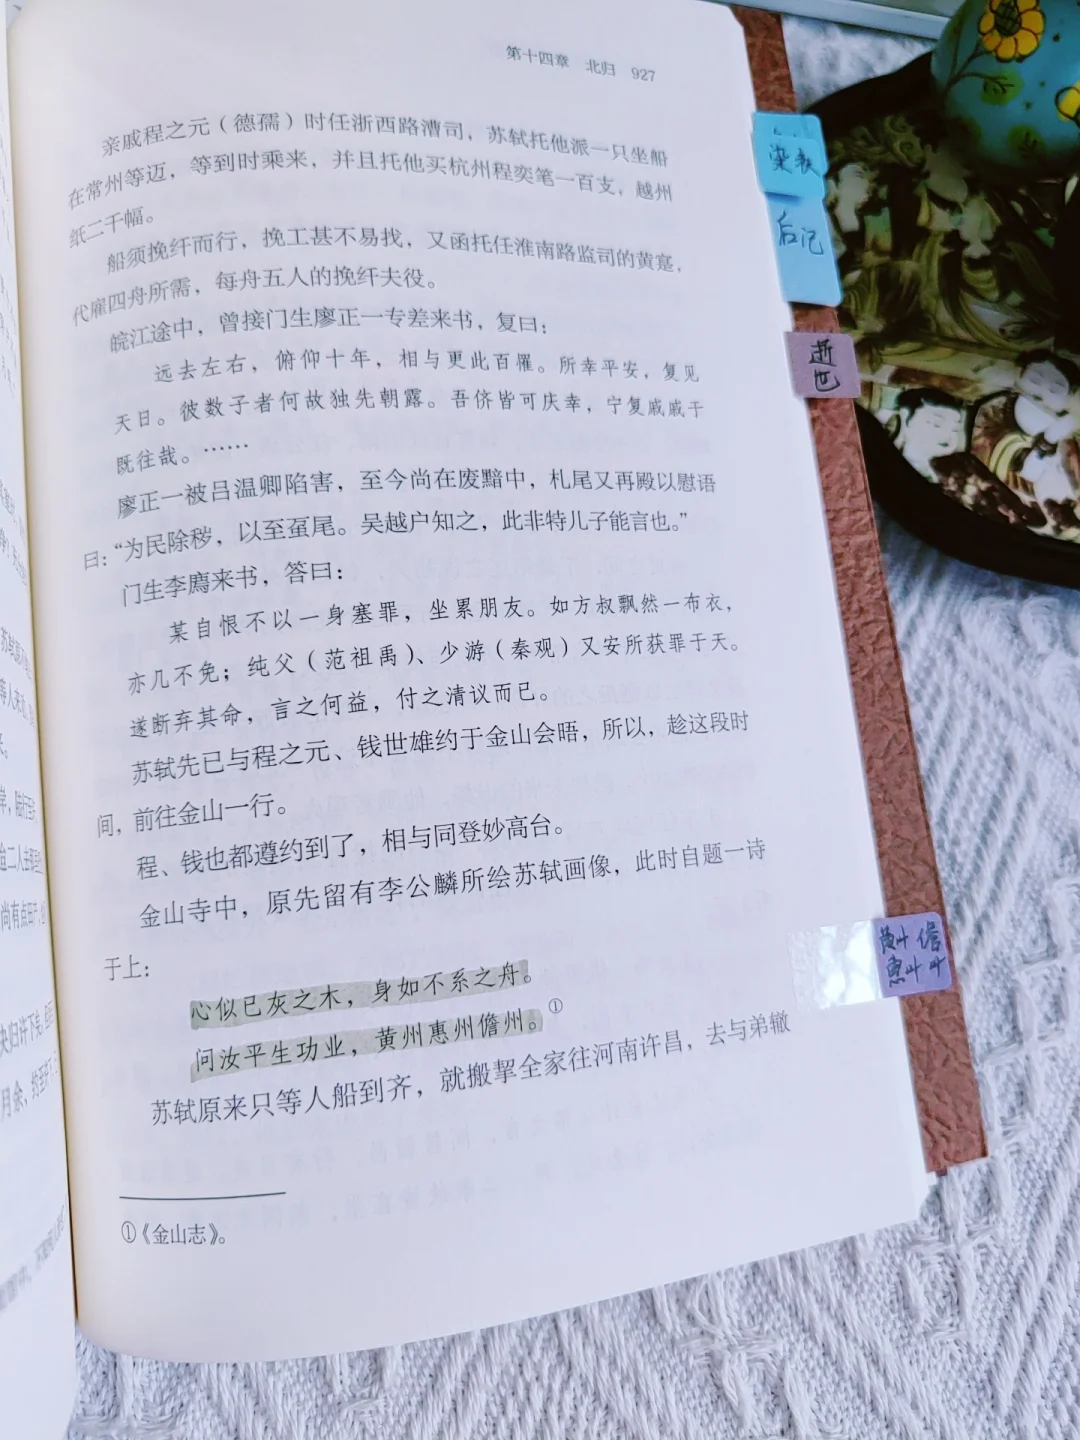 第十四章 北归 927
亲戚程之元（德孺）时任浙西路漕司，苏轼托他派一只坐船
在常州等迈，等到时乘来，并且托他买杭州程奕笔一百支，越州
纸二千幅。
船须挽纤而行，挽工甚不易找，又函托任淮南路监司的黄寔，
代雇四舟所需，每舟五人的挽纤夫役。
皖江途中，曾接门生廖正一专差来书，复曰：
远去左右，俯仰十年，相与更此百罹。所幸平安，复见
天日。彼数子者何故独先朝露。吾侪皆可庆幸，宁复戚戚于
既往哉。……
廖正一被吕温卿陷害，至今尚在废黯中，札尾又再殿以慰语
曰：“为民除秽，以至虿尾。吴越户知之，此非特儿子能言也。”
门生李廌来书，答曰：
某自恨不以一身塞罪，坐累朋友。如方叔飘然一布衣，
亦几不免；纯父（范祖禹）、少游（秦观）又安所获罪于天。
遂断弃其命，言之何益，付之清议而已。
苏轼先已与程之元、钱世雄约于金山会晤，所以，趁这段时
间，前往金山一行。
程、钱也都遵约到了，相与同登妙高台。
金山寺中，原先留有李公麟所绘苏轼画像，此时自题一诗
于上：
心似已灰之木，身如不系之舟。
问汝平生功业，黄州惠州儋州。①
苏轼原来只等人船到齐，就搬挈全家往河南许昌，去与弟辙
①《金山志》。
后记
逝
世